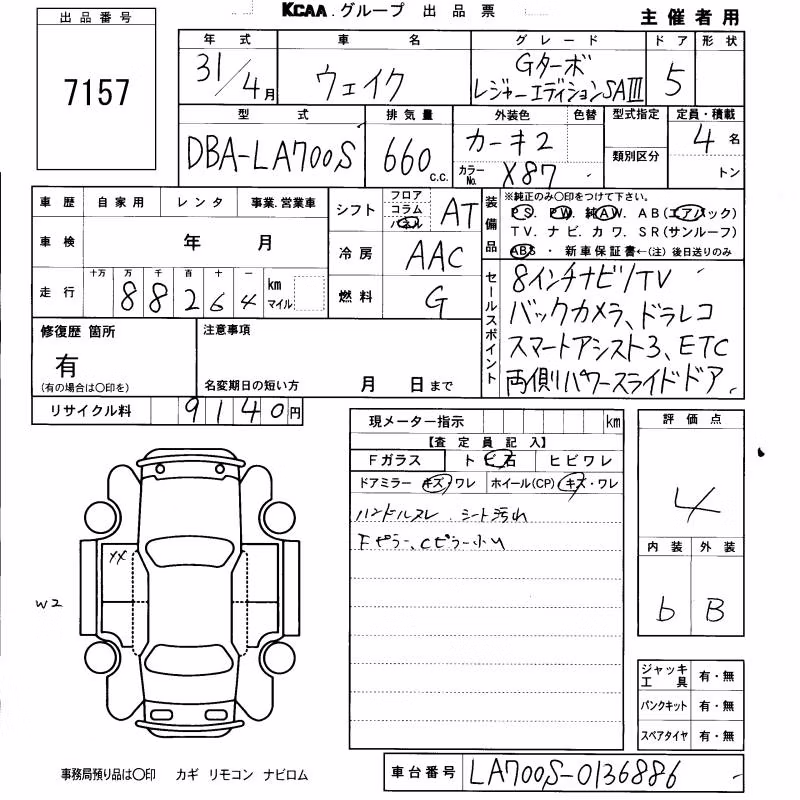 KCAA.グループ 出品票
主催者用
出品番号
7157
年式 車名 グレード ドア 形状
31/4月 ウェイク Gターボ
レジャーエディションSAⅢ 5
型式 排気量 外装色 色替 型式指定 定員・積載
DBA-LA700S 660 c.c. カーキ2 4名
カラーNo. X87 類別区分 トン
車歴 自家用 レンタ 事業.営業車
車検 年 月
走行 十万 万 千 百 十 一 km マイル
88264
シフト フロア コラム パネル AT
冷房 AAC
燃料 G
装備品 ※純正のみ○印をつけて下さい。
PS. PW. 純AW. AB(エアバック)
TV. ナビ. カワ. SR(サンルーフ)
ABS・新車保証書←(注)後日送りのみ
セールスポイント
8インチナビ/TV
バックカメラ、ドラレコ
スマートアシスト3、ETC
両側パワースライドドア
修復歴 箇所
有
(有の場合は○印を)
注意事項
名変期日の短い方 月 日まで
リサイクル料 9140円
現メーター指示 km
【査定員記入】
Fガラス トビ石 ヒビワレ
ドアミラー キズ・ワレ ホイール(CP) キズ・ワレ
ハンドルスレ、シート汚れ
Fピラー、Cピラー小U
評価点
4
内装 外装
b B
XX
W2
ジャッキ工具 有・無
パンクキット 有・無
スペアタイヤ 有・無
事務局預り品は○印 カギ リモコン ナビロム
車台番号 LA700S-0136886